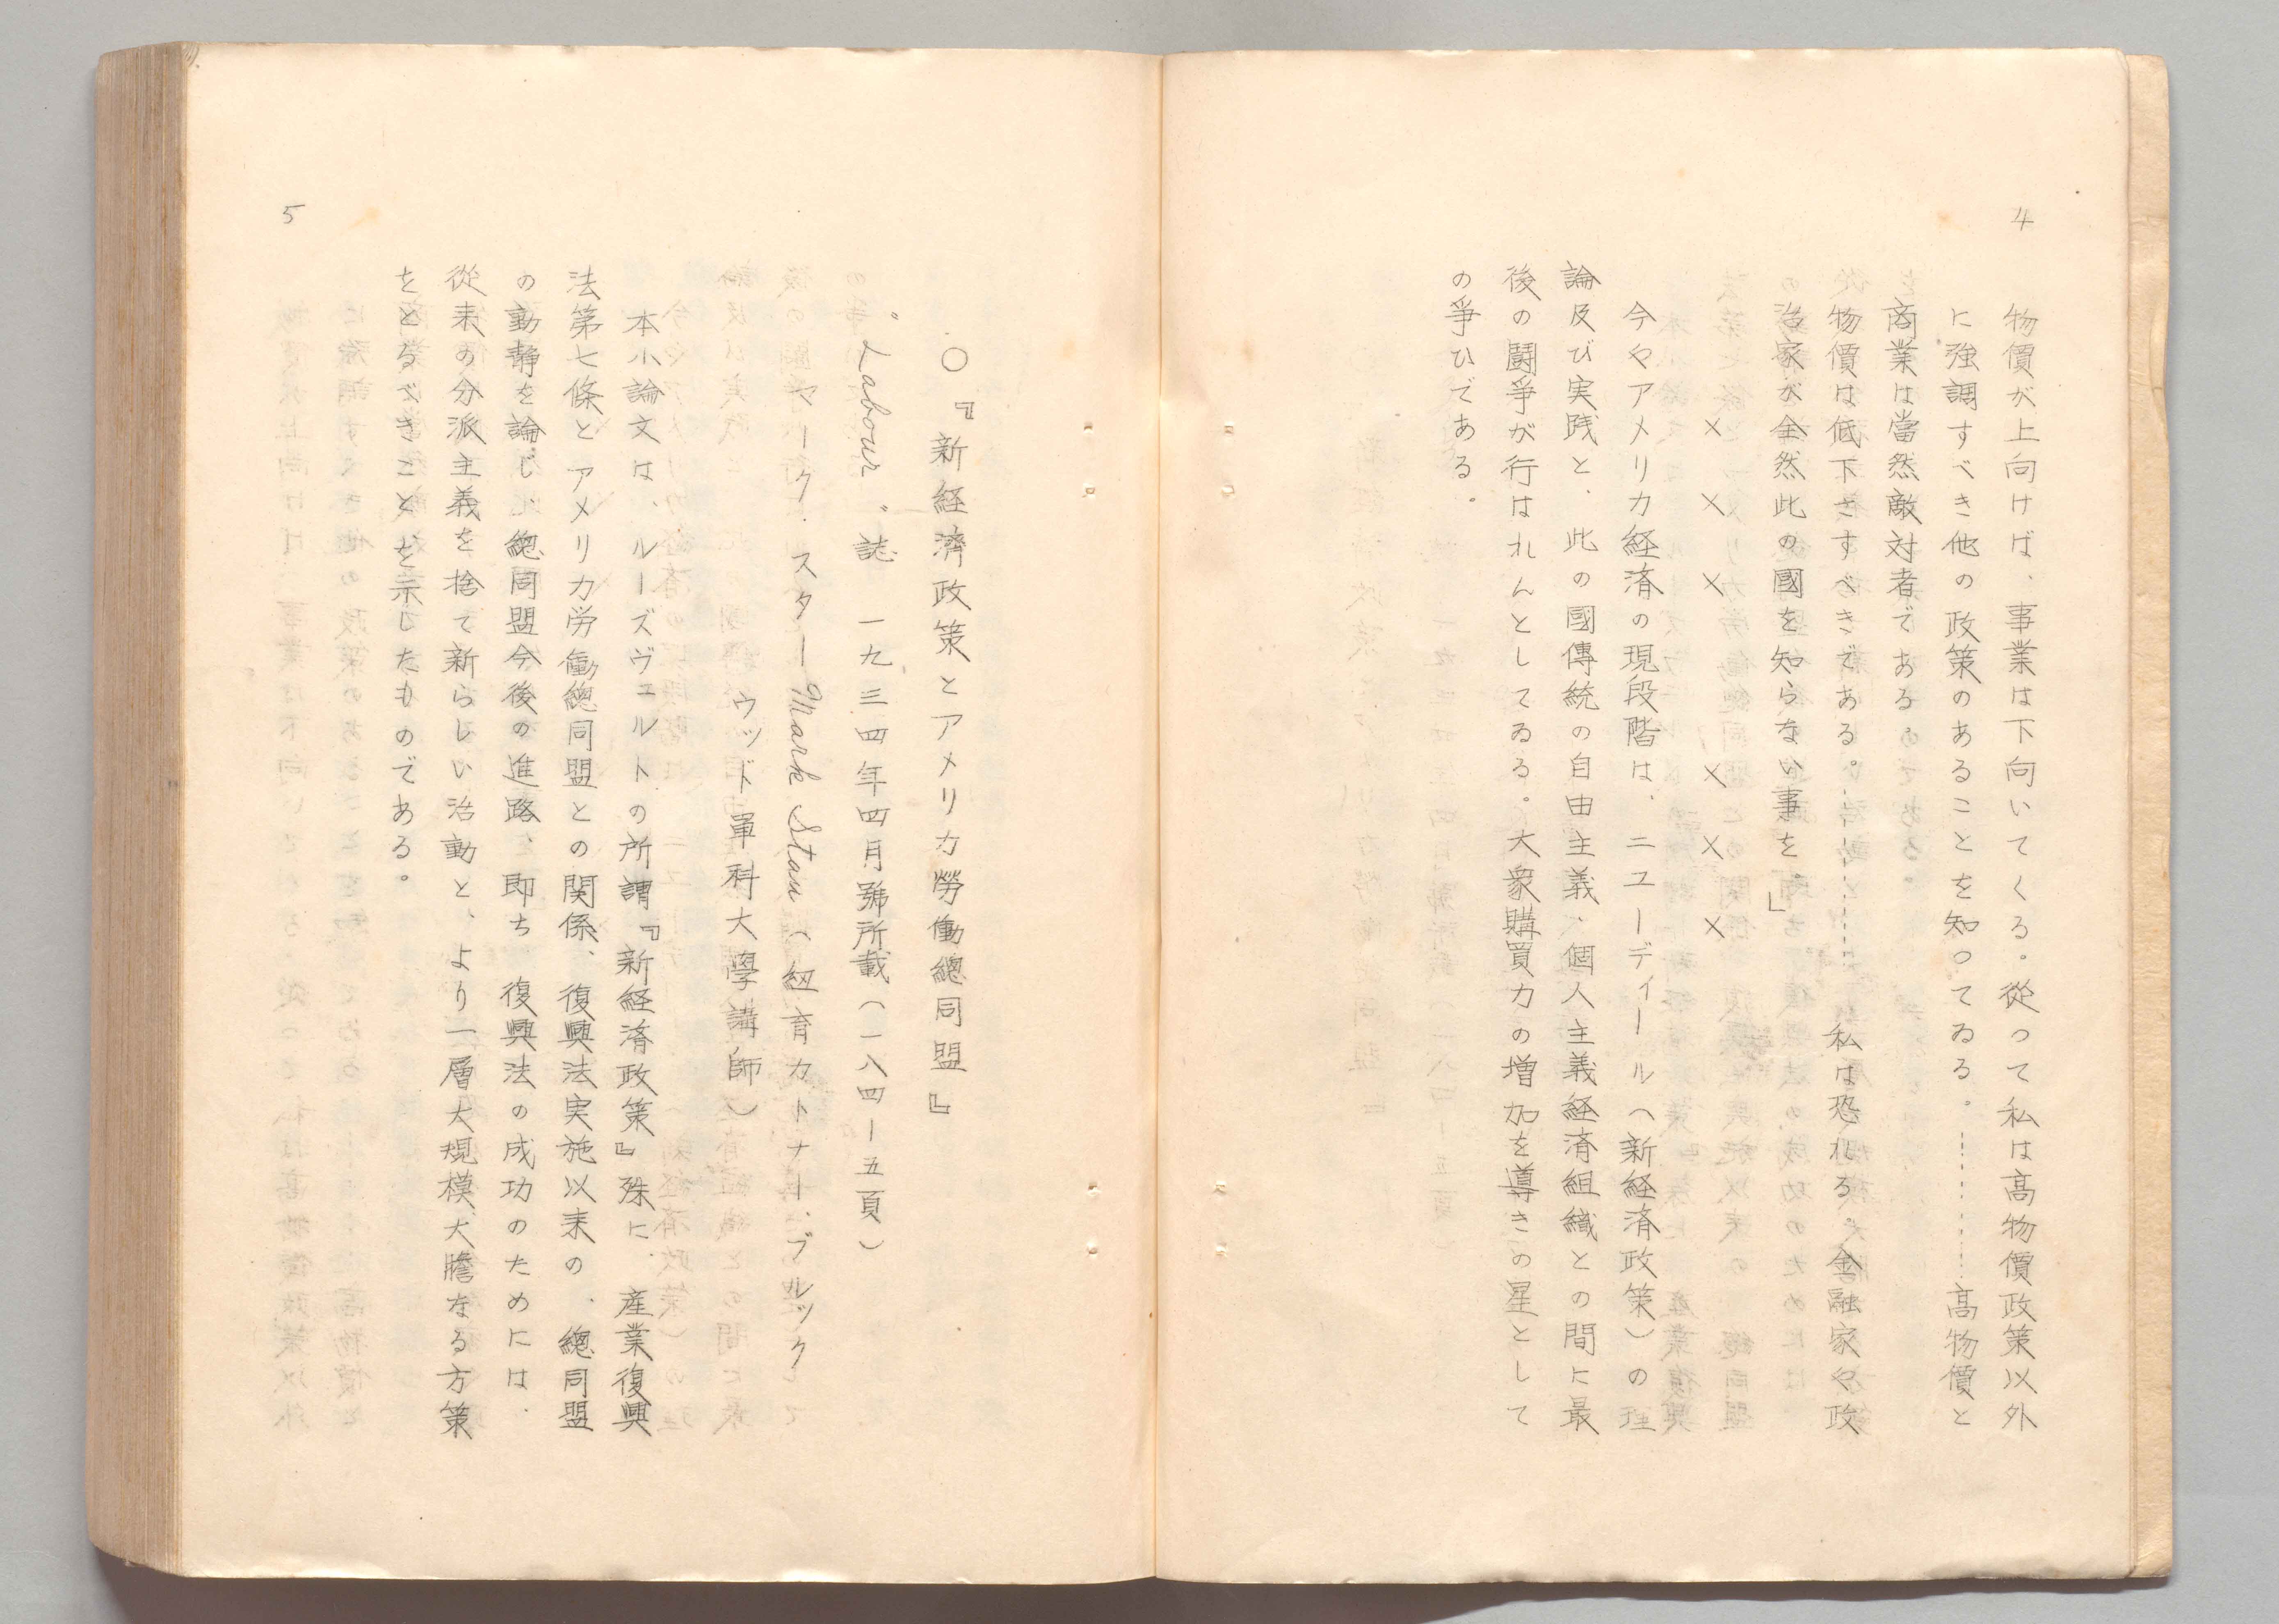 4
物價が上向けば、事業は下向いてくる。從って私は高物價政策以外
に強調すべき他の政策のあることを知ってゐる。………高物價と
商業は當然敵対者である。
物價は低下さすべきである。…………私は恐れる。金融家や政
治家が全然此の國を知らない事を。」
× × × × × ×
今やアメリカ経済の現段階は、ニューディール（新経済政策）の理
論及び実践と、此の國傳統の自由主義、個人主義経済組織との間に最
後の闘爭が行はれんとしてゐる。大衆購買力の増加を導きの星として
の爭ひである。
○『新経濟政策とアメリカ勞働總同盟』
"Labour"誌 一九三四年四月號所載（一八四－五頁）
マーク・スター Mark Stau （紐育カトナー、ブルック
ウッド單科大學講師）
本小論文は、ルーズヴェルトの所謂『新経済政策』殊に、産業復興
法第七條とアメリカ労働總同盟との関係、復興法実施以来の、總同盟
の動靜を論じ、總同盟今後の進路、即ち、復興法の成功のためには、
從来の分派主義を捨て新らしい活動と、より一層大規模、大膽なる方策
をとるべきことを示したものである。
5